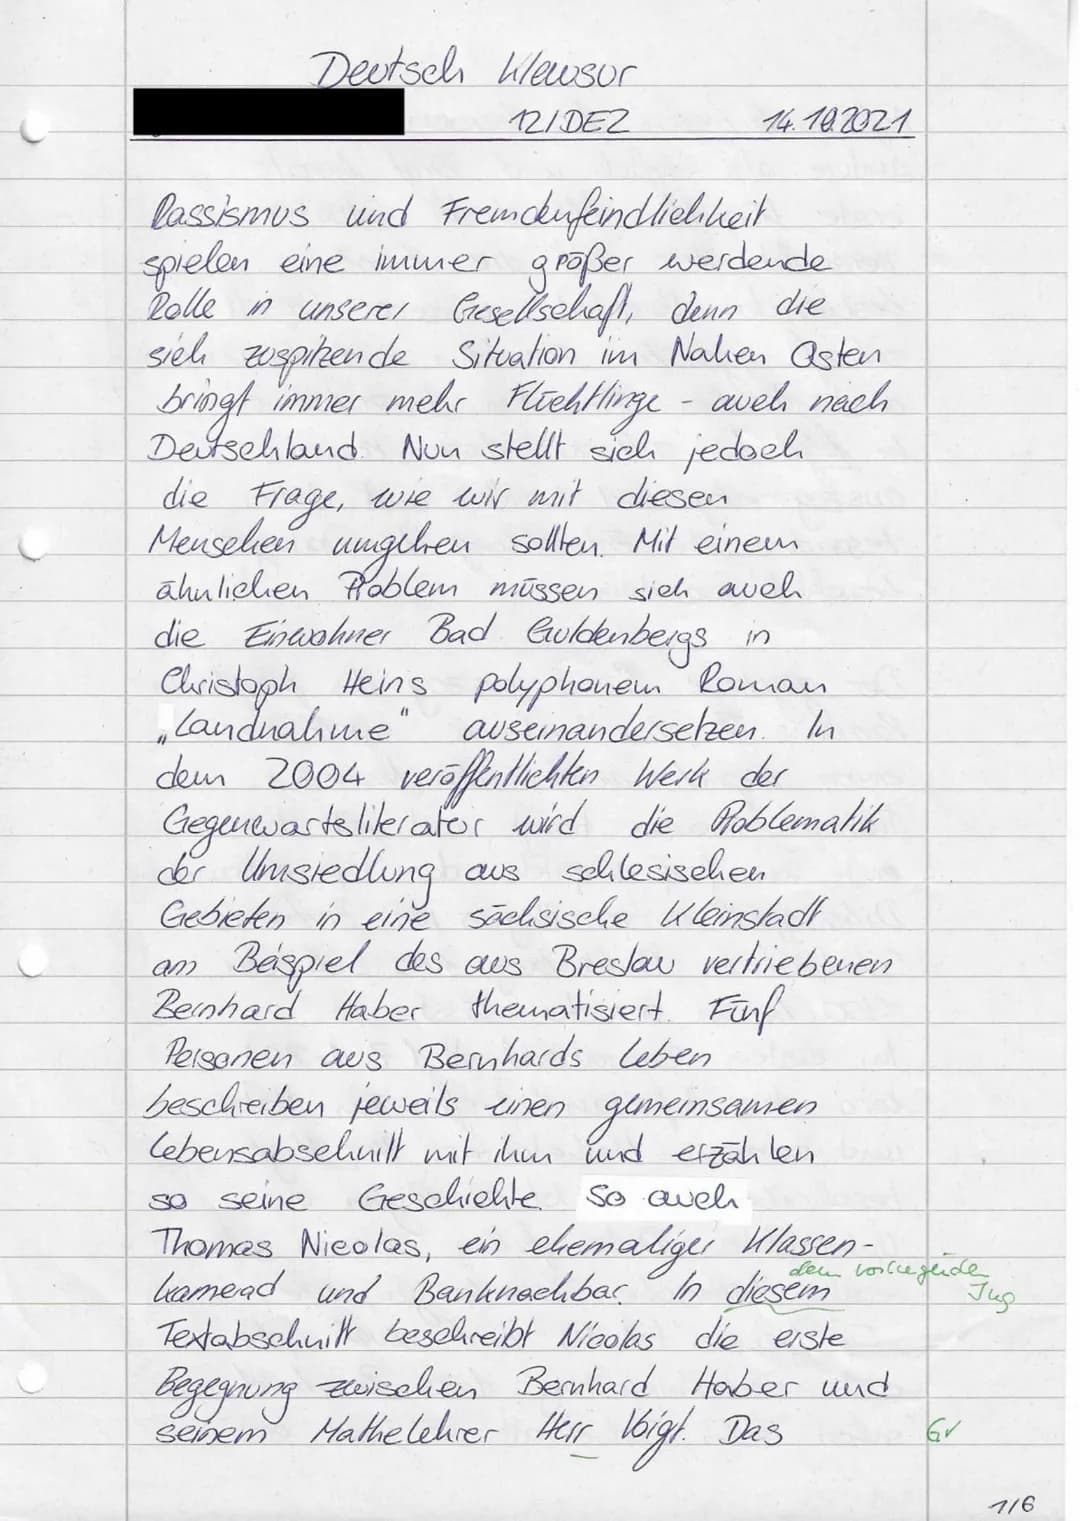 Deutsch Klausur
12/DEZ 14.10.2021
Rassismus und Fremdenfeindlichkeit
spielen eine immer größer werdende
Rolle in unserer Gesellschaft, denn die
sich zuspitzende Situation im Nahen Osten
bringt immer mehr Flüchtlinge - auch nach
Deutschland. Nun stellt sich jedoch
die Frage, wie wir mit diesen
Menschen umgehen sollten. Mit einem
ähnlichen Problem müssen sich auch
die Einwohner Bad Guldenbergs in
Christoph Heins polyphonem Roman
„Landnahme" auseinandersetzen. In
dem 2004 veröffentlichten Werk der
Gegenwartsliteratur wird die Problematik
der Umsiedlung aus schlesischen
Gebieten in eine sächsische Kleinstadt
am Beispiel des aus Breslau vertriebenen
Bernhard Haber thematisiert. Fünf
Personen aus Bernhards Leben
beschreiben jeweils einen gemeinsamen
Lebensabschnitt mit ihm und erzählen
so seine Geschichte. So auch
Thomas Nicolas, ein ehemaliger Klassen-
dem vorliegenden
kamerad und Banknachbar. In diesem
Textabschnitt beschreibt Nicolas die erste
Begegnung zwischen Bernhard Haber und
seinem Mathelehrer Herr Voigt. Das
1/6